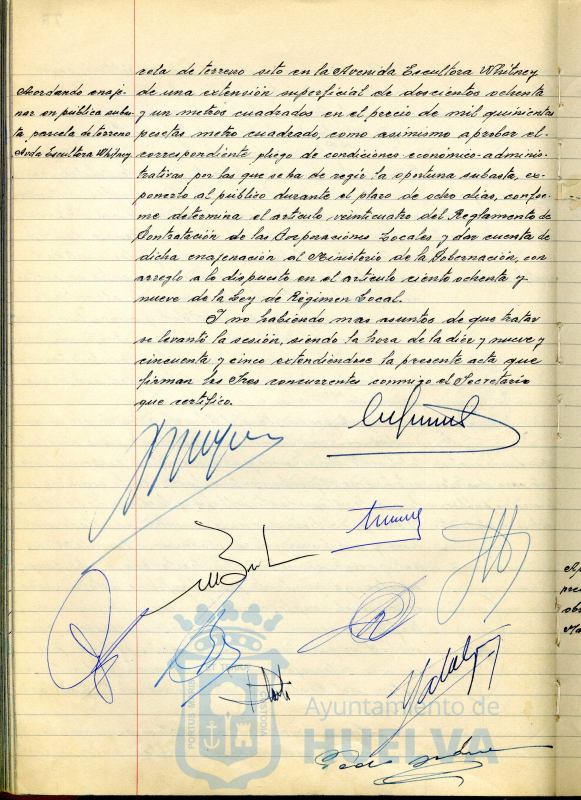 Acordando enaje-
nar en pública subas-
ta parcela de terreno
Avda Escultora Whitney
cela de terreno sito en la Avenida Escultora Whitney
de una extensión superficial de doscientos ochenta
y un metros cuadrados en el precio de mil quinientas
pesetas metro cuadrado, como asimismo aprobar el
correspondiente pliego de condiciones económico-adminis-
trativas por las que se ha de regir la oportuna subasta, ex-
ponerlo al público durante el plazo de ocho días, confor-
me determina el artículo veinticuatro del Reglamento de
Contratación de las Corporaciones Locales y dar cuenta de
dicha enajenación al Ministerio de la Gobernación, con
arreglo a lo dispuesto en el artículo ciento ochenta y
nueve de la Ley de Régimen Local.
Y no habiendo mas asuntos de que tratar
se levantó la sesión, siendo la hora de la diez y nueve y
cincuenta y cinco extendiéndose la presente acta que
firman los Sres concurrentes conmigo el Secretario
que certifico.
Hidalgo
Pedro
PORTUS MARIS
CUSTODIA
Ayuntamiento de
HUELVA